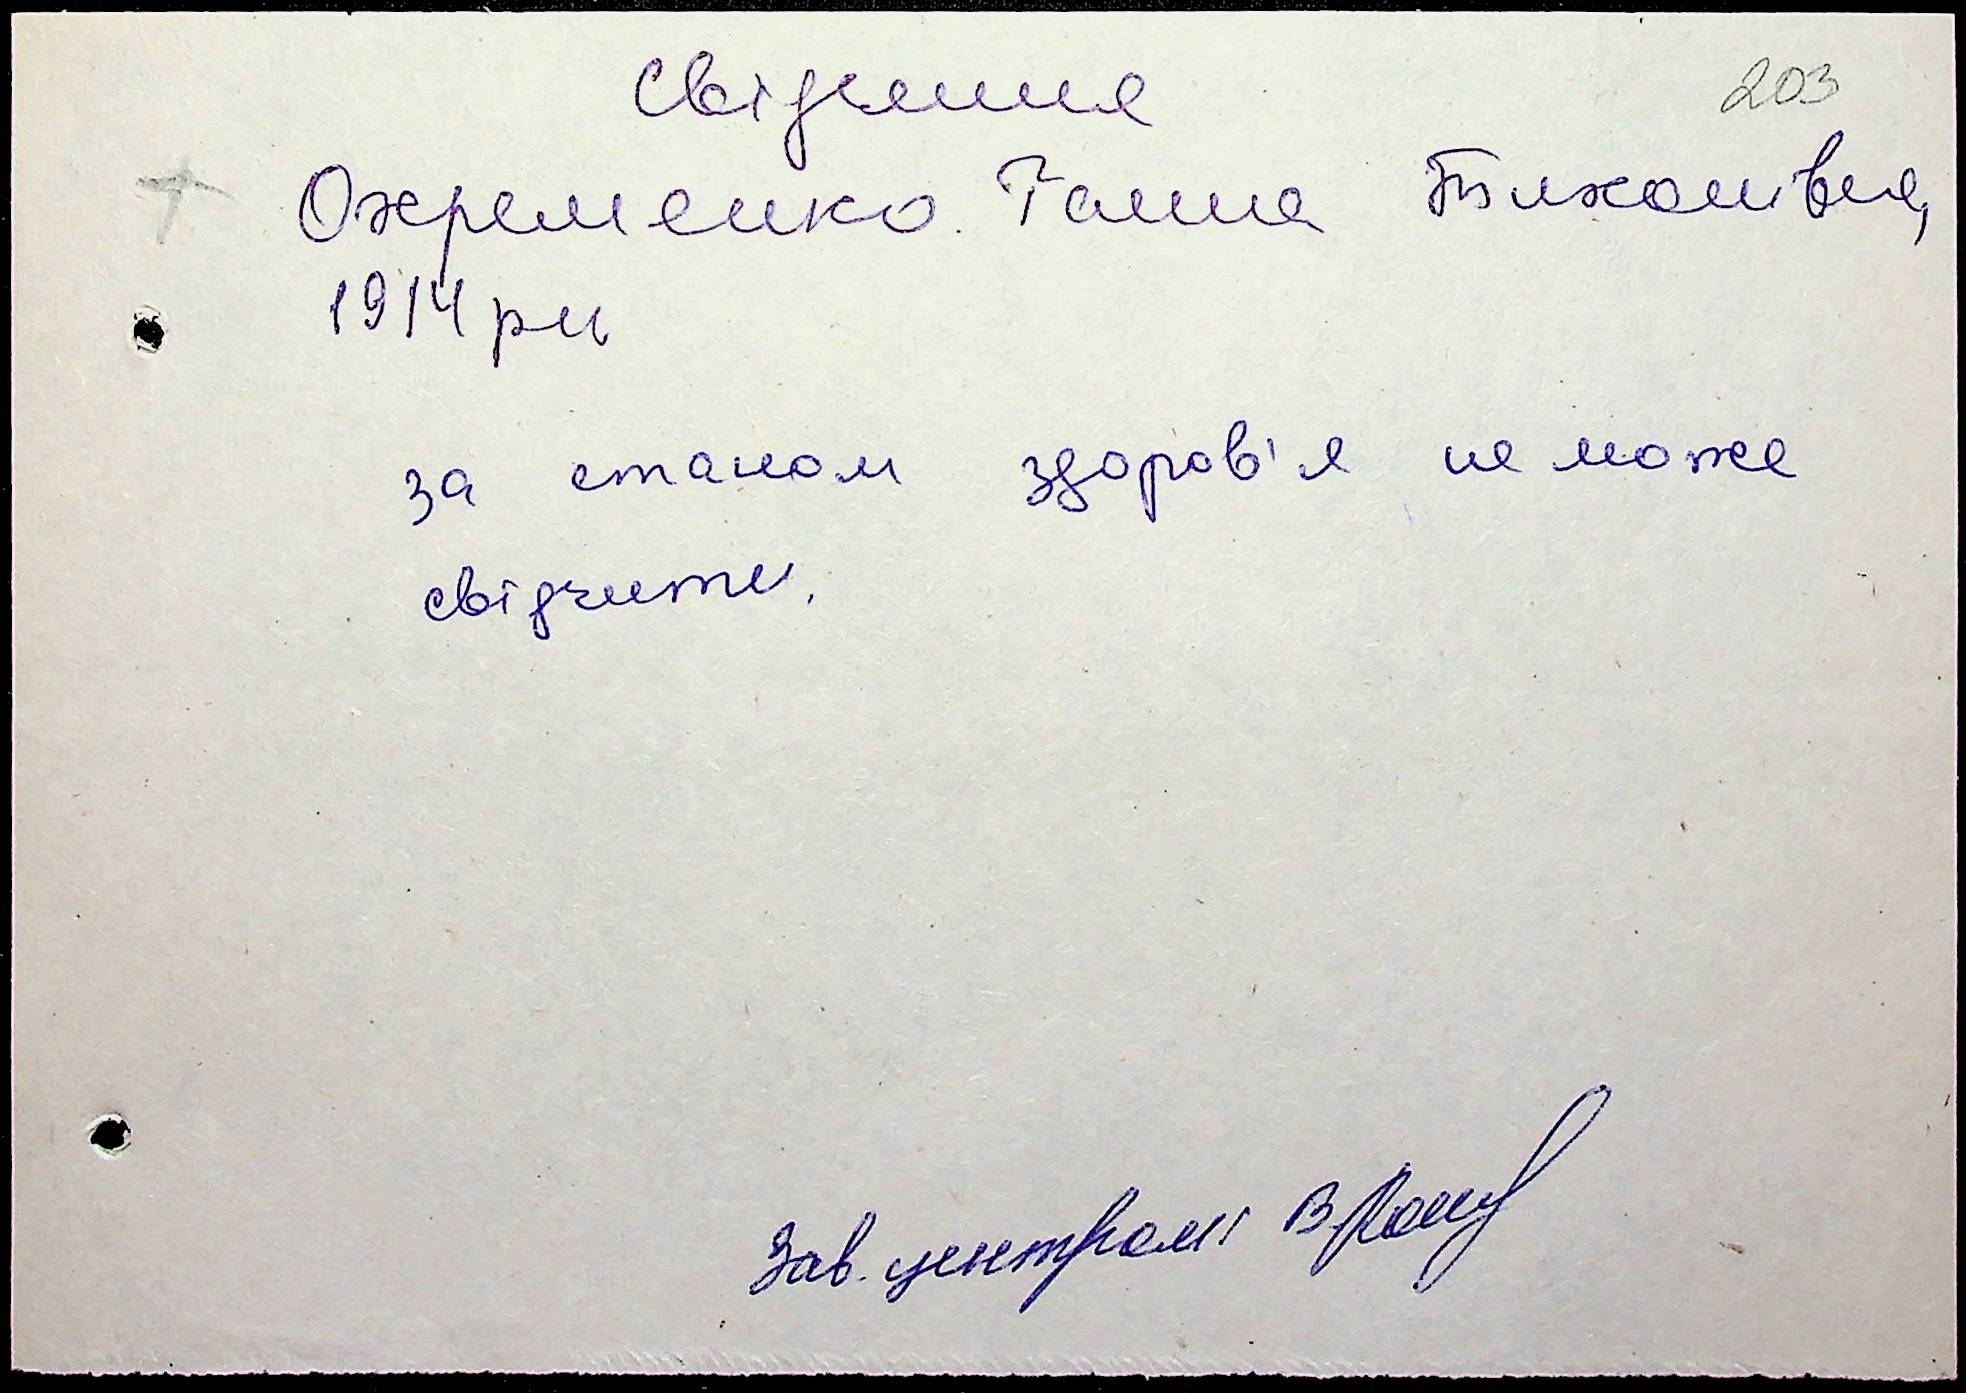 203
Свідчення
Охременко Ганна Тихонівна,
1914 рн
за станом здоров'я не може
свідчити.
Зав. центром